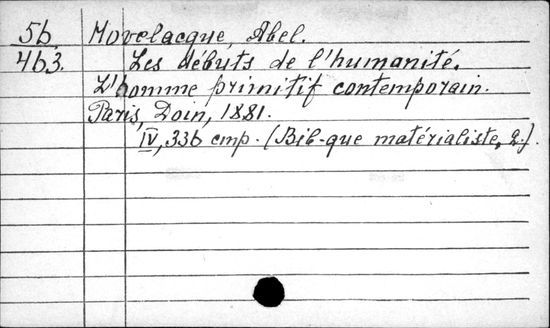 56 Movelacque, Abel.
463. Les débuts de l'humanité.
L'homme primitif contemporain.
Paris, Doin, 1881.
IV, 336 cmp. (Bib-que matérialiste, 2.).